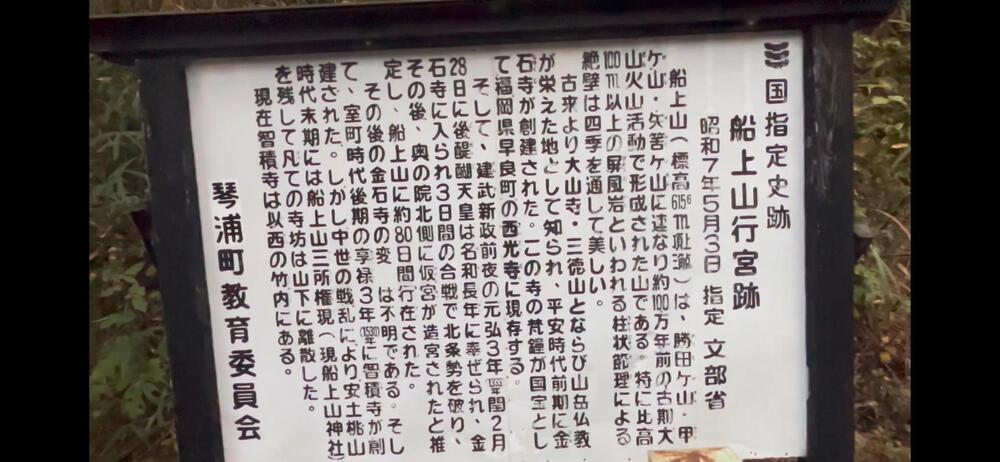 国指定史跡
船上山行宮跡
昭和7年5月3日 指定 文部省
船上山(標高615.6m頂上)は、勝田ケ山・甲
ケ山・矢筈ケ山に連なり約100万年前の古期大
山火山活動で形成された山である。特に比高
100m以上の屏風岩といわれる柱状節理による
絶壁は四季を通して美しい。
古来より大山寺・三徳山とならび山岳仏教
が栄えた地として知られ、平安時代前期に金
石寺が創建された。この寺の梵鐘が国宝とし
て福岡県早良町の西光寺に現存する。
そして、建武新政前夜の元弘3年(1333年)閏2月
28日に後醍醐天皇は名和長年に奉ぜられ、金
石寺に入られ3日間の合戦で北条勢を破り、
その後、奥の院北側に仮宮が造宮されたと推
定し、船上山に約80日間行在された。
その後の金石寺の変 は不明である。そし
て、室町時代後期の享禄3年(1530年)に智積寺が創
建された。しかし中世の戦乱により、安土桃山
時代末期には船上山三所権現(現船上山神社)
を残して凡ての寺坊は山下に離散した。
現在智積寺は以西の竹内にある。
琴浦町教育委員会